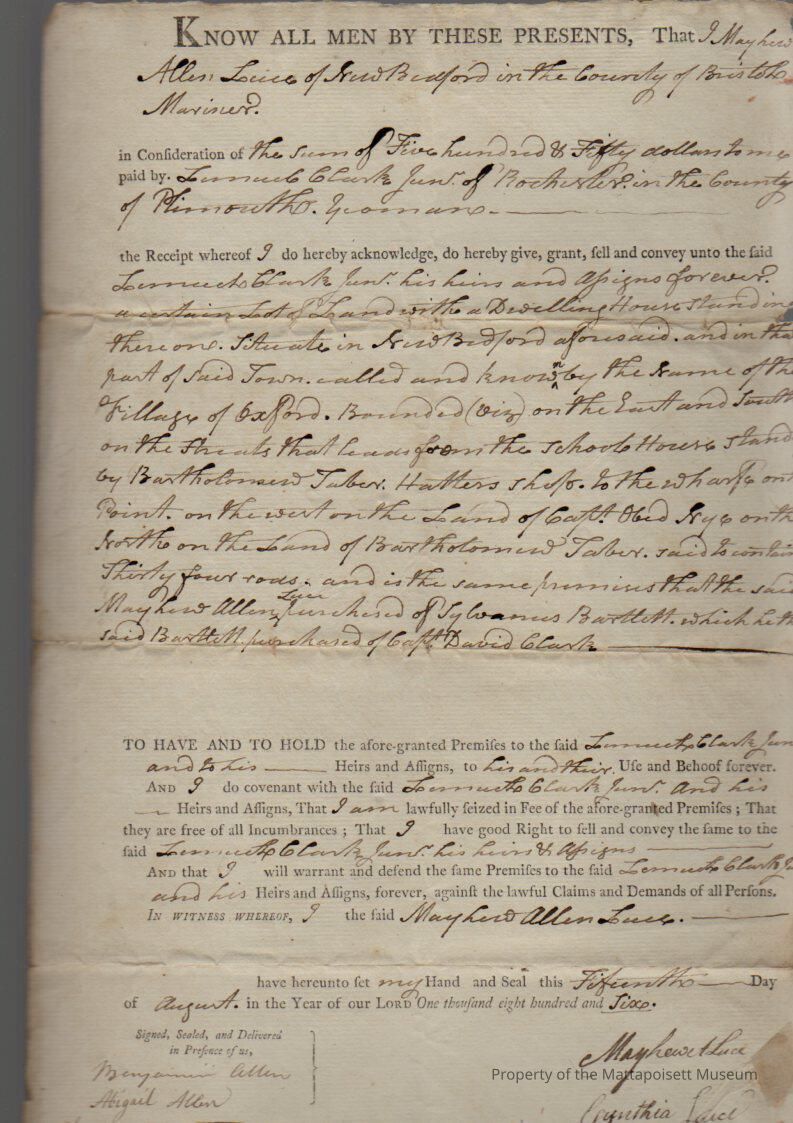 KNOW ALL MEN BY THESE PRESENTS, That I Mayhew
Allen Luce of New Bedford in the County of Bristol
Mariner.
in Consideration of the sum of Five hundred & Fifty dollars to me
paid by. Lemuel Clark Junr. of Rochester. in the County
of Plimouth. Yeoman.
the Receipt whereof I do hereby acknowledge, do hereby give, grant, sell and convey unto the said
Lemuel Clark Junr. his heirs and Assigns forever.
a certain Lot of Land with a Dwelling House standing
thereon. Situate in New Bedford aforesaid. and in that
part of said Town. called and known by the Name of the
Village of Oxford. Bounded (viz) on the East and South
on the Streets that leads from the School House stand
by Bartholomew Taber. Hatters shop. to the wharf on
Point. on the west on the Land of Capt. Obed Nye on the
North on the Land of Bartholomew Taber. said to contain
Thirty four rods. and is the same premises that the said
Mayhew Allen Luce purchased of Sylvanus Bartlett. which he the
said Bartlett purchased of Capt. David Clark
TO HAVE AND TO HOLD the afore-granted Premises to the said Lemuel Clark Jun
and to his Heirs and Assigns, to his and their Use and Behoof forever.
AND I do covenant with the said Lemuel Clark Junr. And his
Heirs and Assigns, That I am lawfully seized in Fee of the afore-granted Premises ; That
they are free of all Incumbrances ; That I have good Right to sell and convey the same to the
said Lemuel Clark Junr. his heirs & Assigns
AND that I will warrant and defend the same Premises to the said Lemuel Clark J
and his Heirs and Assigns, forever, against the lawful Claims and Demands of all Persons.
IN WITNESS WHEREOF, I the said Mayhew Allen Luce.
have hereunto set my Hand and Seal this Fifteenth Day
of August. in the Year of our LORD One thousand eight hundred and Six.
Signed, Sealed, and Delivered
in Presence of us,
Benjamin Allen
Abigail Allen
Mayhew A Luce
Cynthia Luce
Property of the Mattapoisett Museum